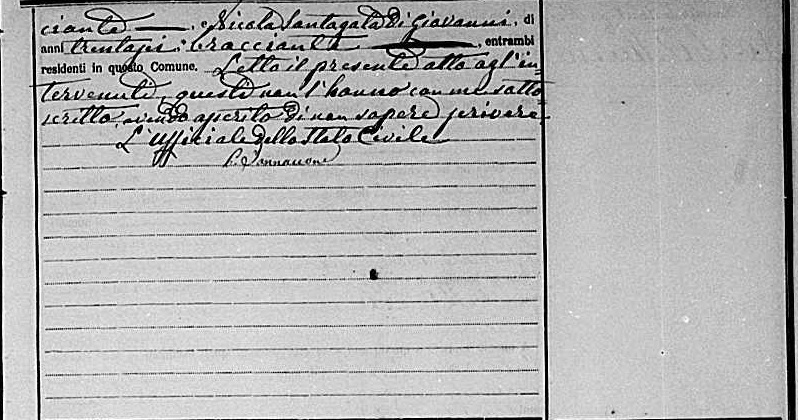 ciante —, e Nicola Santagata di Giovanni, di
anni trentasei, bracciante —, entrambi
residenti in questo Comune. Letto il presente atto agl'in-
tervenuti, questi non l'hanno con me sotto
scritto, avendo asserito di non sapere scrivere.
L'Uffiziale dello Stato Civile